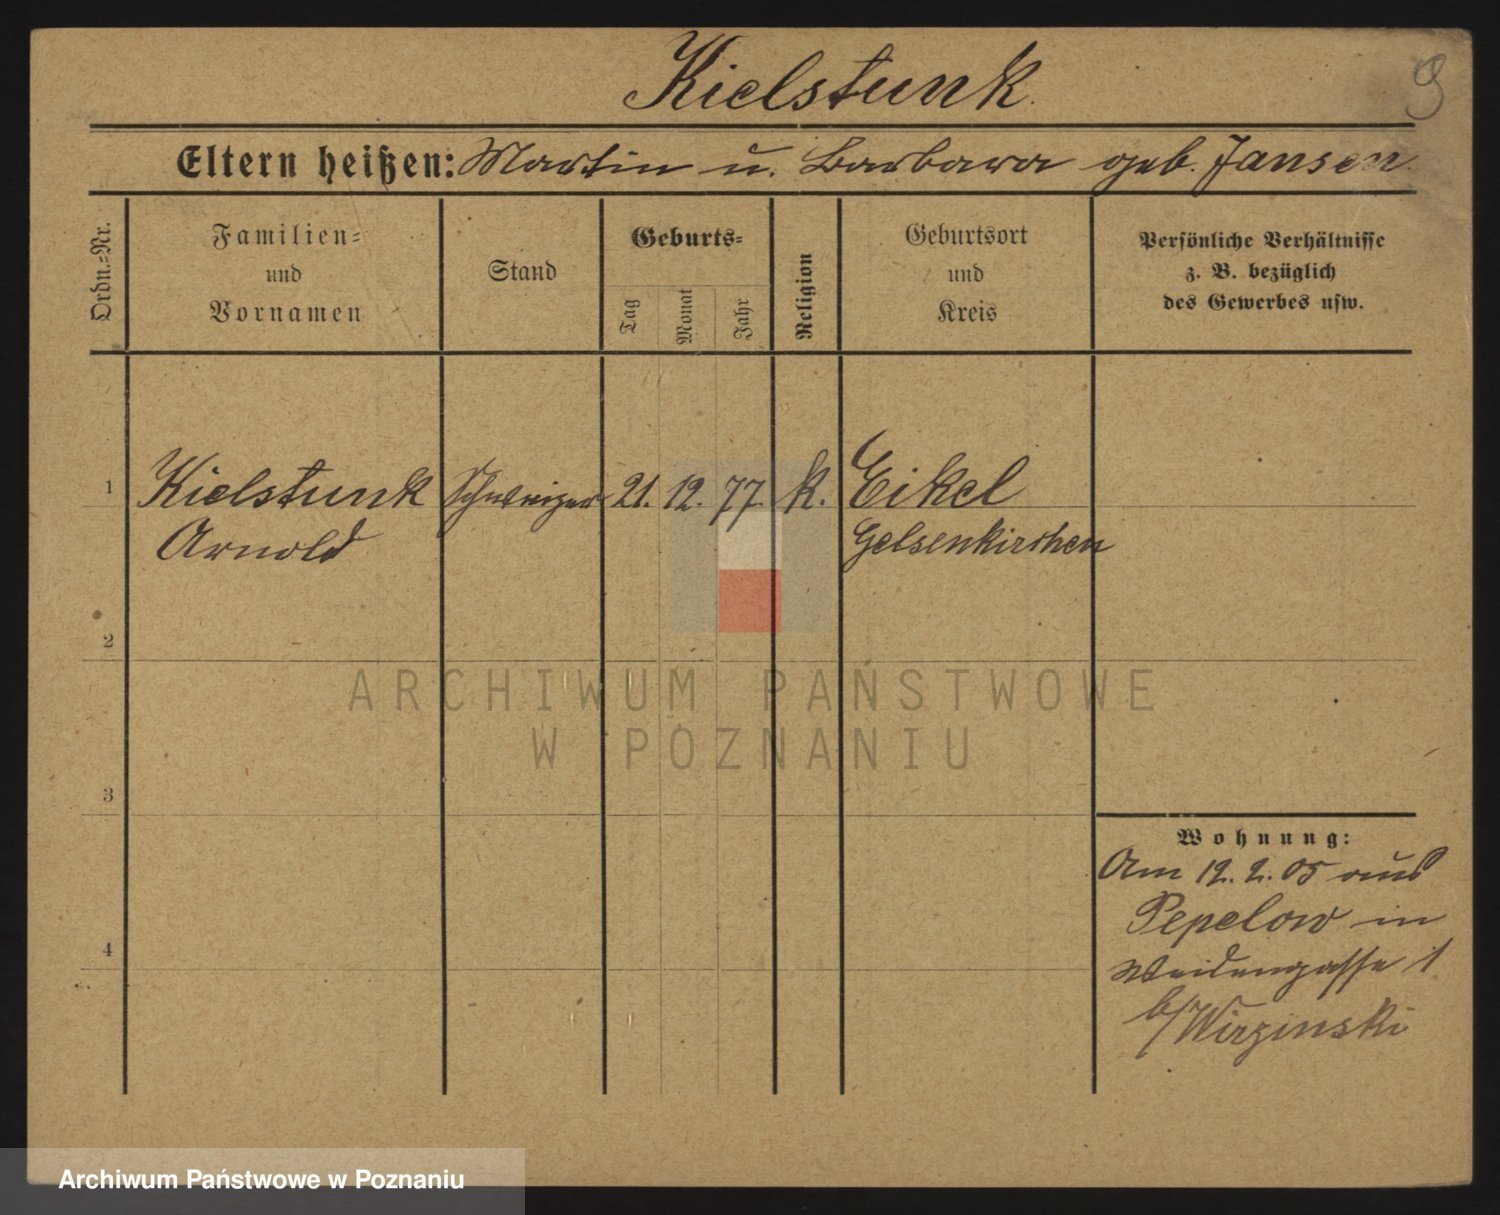 Kielstunk.
9
Eltern heißen: Martin u. Barbara geb. Jansen.
Ordn.=Nr.
Familien=
und
Vornamen
Stand
Geburts=
Tag
Monat
Jahr
Religion
Geburtsort
und
Kreis
Persönliche Verhältnisse
z. B. bezüglich
des Gewerbes usw.
1 Kielstunk 21. 12. 77. k. Eikel
Arnold Gelsenkirchen
2
3
4
Wohnung:
Am 12. 2. 05 aus
Pepelow in
Weidengasse 1
b/Wirzinski
ARCHIWUM PAŃSTWOWE
W POZNANIU
Archiwum Państwowe w Poznaniu